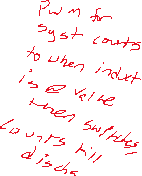 PWM for
syst counts
to when induct
is @ value
then switches
counts till
dischg